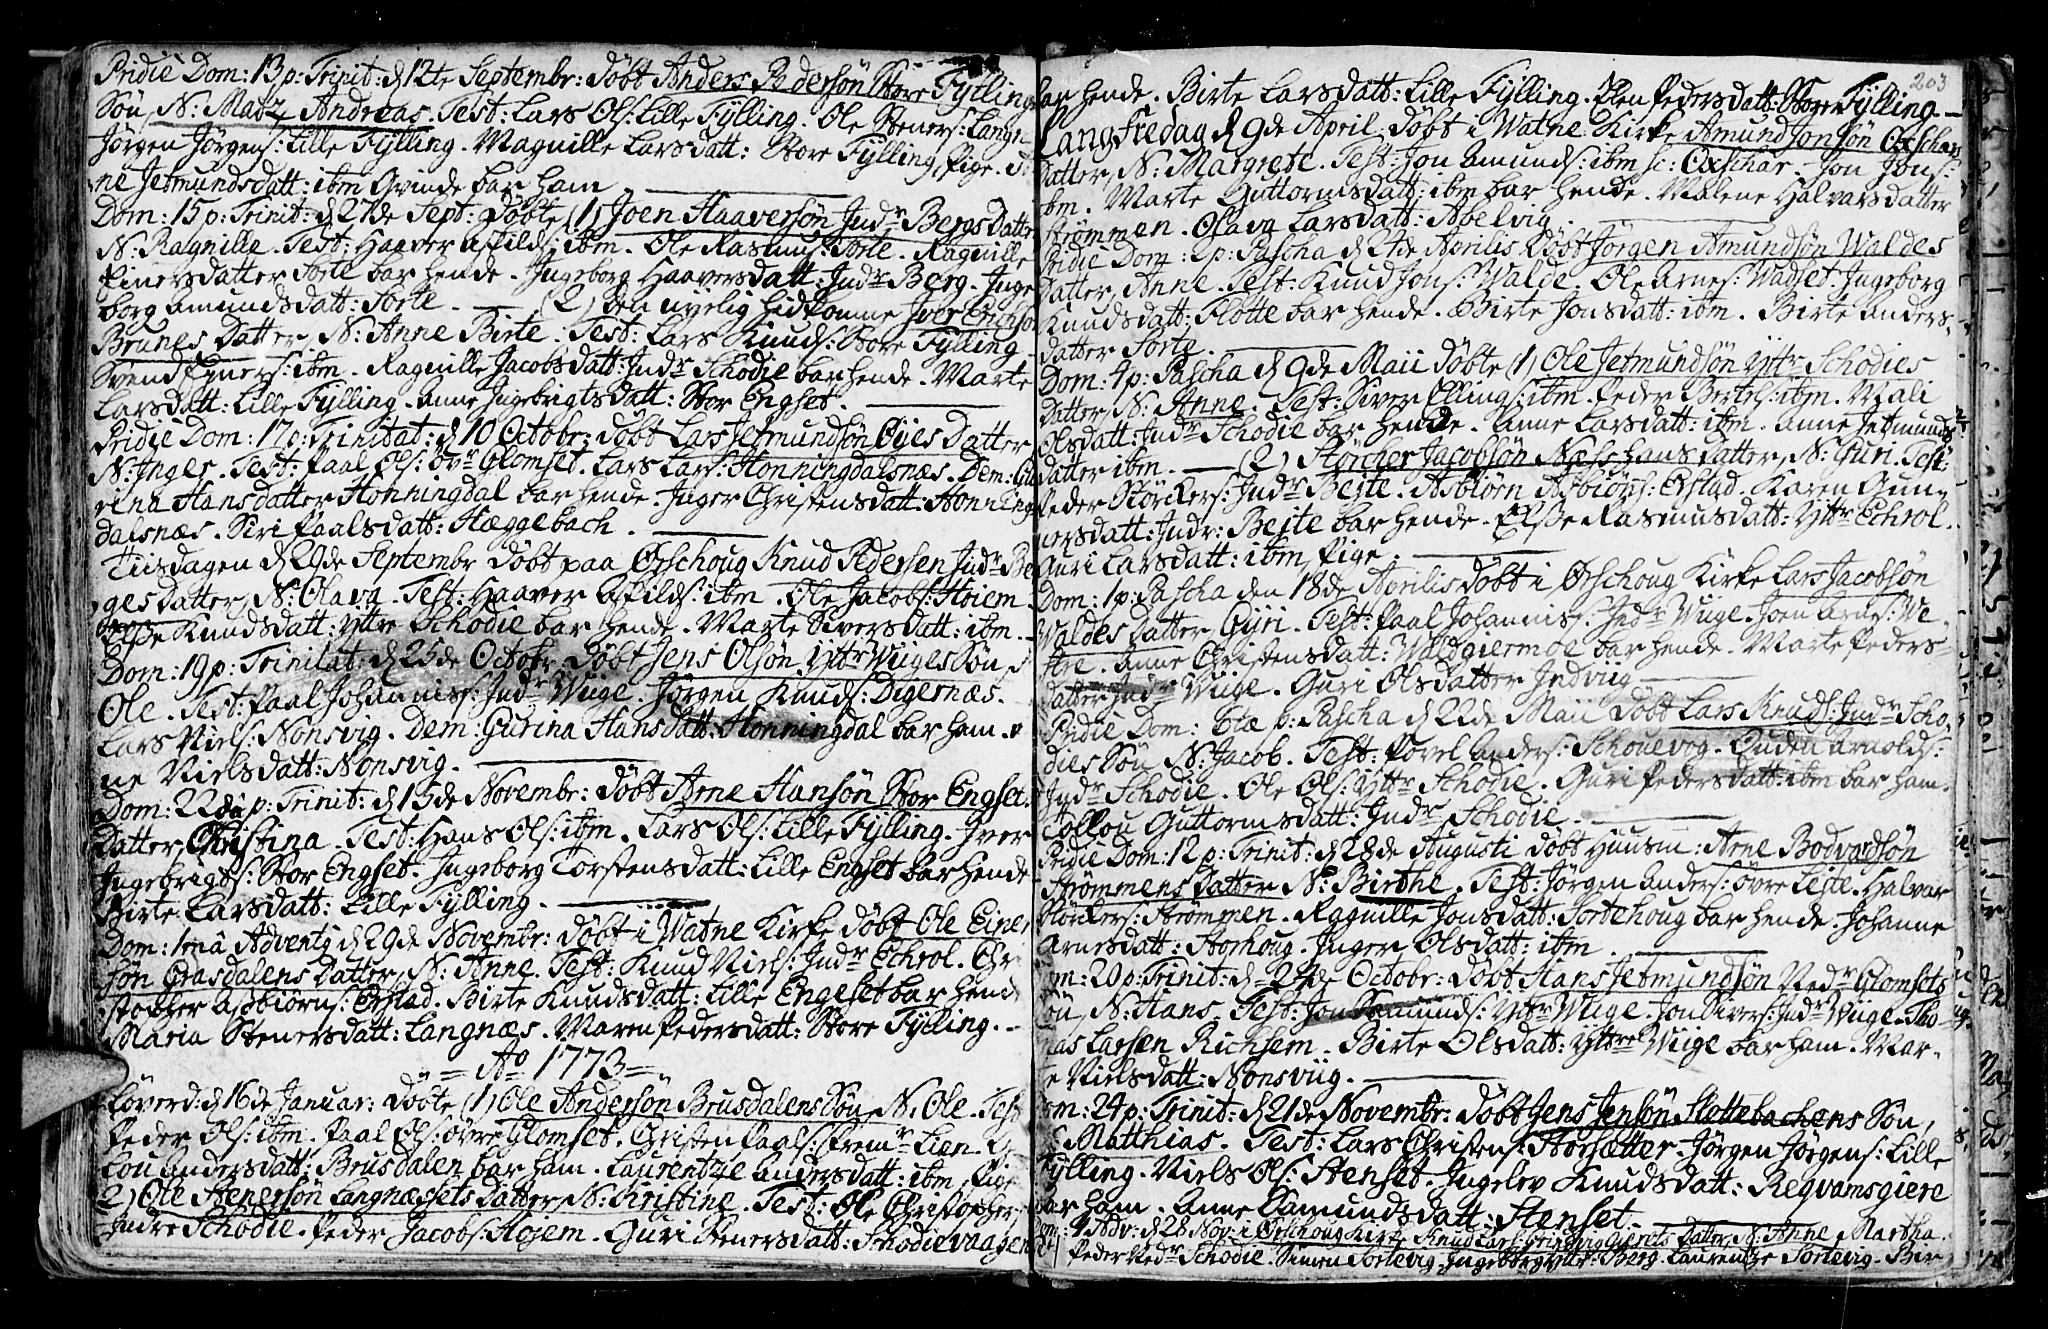 Pridie Dom: 13 p: Trinit: d 12te Septembr: döbt Anders Pedersön Store Fylling
Sön, N: Matz Andreas. Test: Lars Ols: Lille Fylling. Ole Steners: Langn
Jörgen Jörgens: Lille Fylling. Magnille Larsdatt: Store Fylling, Pige.
ne Jetmundsdatt: ibm Qvinde bar ham
Dom: 15 p: Trinit: d 27de Sept: döbte (1) Joen Haaversön Indr Bergs Datter
N: Ragnille. Test: Haaver Asfilds: ibm. Ole Rasmus: Sorte. Ragnille
Einersdatter Sorte bar hende. Ingeborg Haaversdatt: Indr Berg. Inge
borg Amundsdatt: Sorte. (2) den nyelig hidkomne Iver Erichsön
Brunes Datter, N: Anne Birte. Test: Lars Knuds: Store Fylling.
Svend Eyners: ibm. Ragnille Jacobsdatt: Indr Schodie bar hende. Marte
Larsdatt: Lille Fylling. Anne Ingebrigtsdatt: Stor Engset.
Pridie Dom: 17 p: Trinitat: d 10 Octobr: döbt Lars Jetmundsön Öyes Datter
N: Inger. Test: Paal Ols: övr Glomset. Lars Lars: Honningdalsnæs. Dem: Gu
rina Hansdatter Honningdal bar hende. Inger Christensdatt: Honning
dalsnæs. Siri Paalsdatt: Hæggebach.
Tiisdagen d 29de Septembr döbt paa Örschoug Knud Pedersen Indr Be
ges Datter, N: Olava. Test: Haaver Asfilds: ibm. Ole Jacobs: Hoiem.
Else Knudsdatt: Yttre Schodie bar hende. Marte Siversdatt: ibm.
Dom: 19 p: Trinitat: d 25de Octobr: döbt Jens Olsön Yttr Wiiges Sön
Ole. Test: Paal Johanniss: Indr Wiige. Jörgen Knuds: Digernæs.
Lars Niels: Nonsvig. Dem: Gurina Hansdatt: Honningdal bar ham.
ne Nielsdatt: Nonsvig.
Dom: 22da p: Trinit: d 15de Novembr: döbt Arne Hansön Stor Engset.
Datter, Christina. Test: Hans Ols: ibm. Lars Ols: Lille Fylling. Iver
Ingebrigts: Stor Engset. Ingeborg Torstensdatt: Lille Engset bar hende
Birte Larsdatt: Lille Fylling.
Dom: 1mâ Adventq d 29de Novembr: döbt i Watne Kirke döbt Ole Einer
sön Grasdalens Datter, N: Anne. Test: Knud Niels: Indr Echrol. Chr
stopher Asbiörns: Erstad. Birte Knudsdatt: Lille Engeset bar hend
Maria Stenersdatt: Langnæs. Maren Pedersdatt: Store Fylling.
Ao 1773
Löverd: d 16de Januar: döbte (1) Ole Andersön Brusdalens Sön, N: Ole. Test
Peder Ols: ibm. Paal Ols: övre Glomset. Christen Paals: Fremr Lien.
lou Andersdatt: Brusdalen bar ham. Laurentze Andersdatt: ibm, Pige.
2) Ole Stenersön Langnæssets Datter, N: Kirstine. Test: Ole Christopher
Indre Schodie. Peder Jacobs: Hojem. Guri Stenersdatt: Schodievaagen
203
bar hende. Birte Larsdatt: Lille Fylling. Elen Pedersdatt: Store Fylling.
Langfredag d 9de April döbt i Watne Kirke Amund Jonsön Oxschars
Datter, N: Margrete. Test: Jon Amunds: ibm sc: Oxschar. Jon Jons:
ibm. Marte Guttormsdatt: ibm bar hende. Malene Halvarsdatter
Strömmen. Olava Larsdatt: Abelvig.
Pridie Dom: 2 p: Pascha d 24de Aprilis döbt Jörgen Amundsön Waldes
Datter, Anne. Test: Knud Jons: Walde. Ole Arnes: Wadset. Ingeborg
Knudsdatt: Flotte bar hende. Birte Jonsdatt: ibm. Birte Anders-
datter Sorte.
Dom: 4 p: Pascha d 9de Maii döbte (1) Ole Jetmundsön Yttr Schodies
Datter, N: Anne. Test: Siver Ellings: ibm. Peder Bertels: ibm. Mali
Olsdatt: Indr Schodie bar hende. Anne Larsdatt: ibm. Anne Jetmunds
datter ibm. (2) Störcher Jacobsön Næss hans Datter, N: Guri. Test:
Peder Störkers: Indr Bejte. Asbiörn Asbiörns: Erstad. Karen Gun-
nersdatt: Indr: Bejte bar hende. Else Rasmusdatt: Yttr Echrol.
Guri Larsdatt: ibm, Pige.
Dom: 1 p: Pascha den 18de Aprilis döbt i Örschoug Kirke Lars Jacobsön
Waldes Datter Gyri. Test: Paal Johannis: Indr Wiige. Joen Arnes: We-
stre. Anne Christensdatt: Waldgiermoe bar hende. Marte Peders-
datter Indr Wiige. Guri Olsdatter Indviig
Pridie Dom: 6tæ p: Pascha d 22de Maii döbt Lars Knuds: Indr Scho
dies Sön N: Jacob. Test: Povel Anders: Schouevog. Ouden Arnolds:
Indr Schodie. Ole Ols: Yttr Schodie. Guri Pedersdatt: ibm bar ham.
Collou Guttormsdatt: Indr Schodie.
Pridie Dom: 12 p: Trinit: d 28de Augusti döbt Huusm: Arne Bodvardsön
Strömmens Datter N: Birthe. Test: Jörgen Anders: övre Lejte. Halvar
Störkers: Strömmen. Ragnille Jonsdatt: Sordehoug bar hende. Johanne
Arnesdatt: Storhoug. Inger Olsdatt: ibm
Dom: 20 p: Trinit: d 24de Octobr: döbt Hans Jetmundsön Nedr Glomsets
Sön, N: Hans. Test: Jon Samunds: Yttr Wiige. Jon Sivers: Indr Wiige. Tho-
mas Larsen Richsem. Birte Olsdatt: Yttre Wiige bar ham. Mar-
te Nielsdatt: Nonsviig.
Dom: 24 p: Trinit: d 21de Novembr: döbt Jens Jensön Slettebachens Sön,
N: Matthias. Test: Lars Christens: Storsætter. Jörgen Jörgens: Lille
Fylling. Niels Ols: Stenset. Ingelev Knudsdatt: Reqvamsgiere
bar ham. Anne Samundsdatt: Stenset.
Dom: 1 Adv: d 28 Nov: i Örschoug Kirke Knud Lars: Datter, N: Anne Martha.
Peder Nedr Schodie. Simen Sortevig. Ingeborg Yttr: Berg. Laurentze Sortevig. Bir-